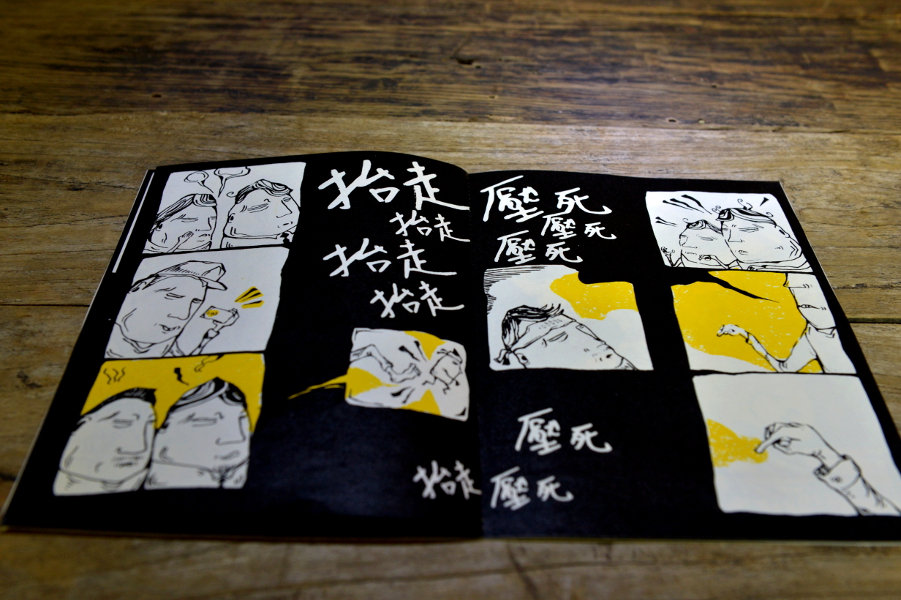 抬走
抬走
抬走
抬走
抬走
壓死
壓死
壓死
壓死
壓死